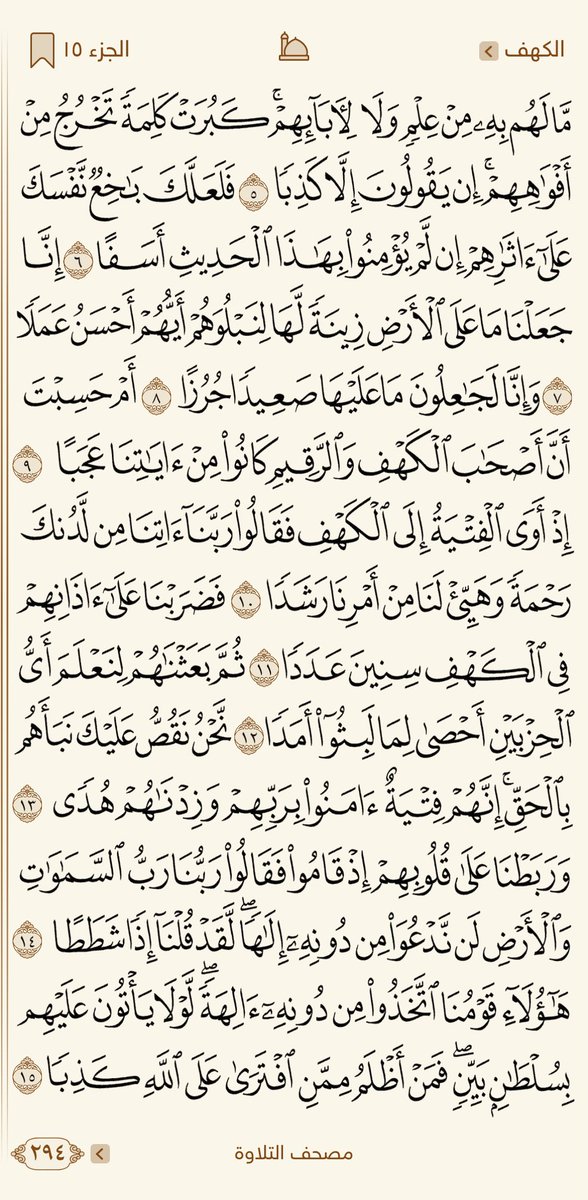 الكهف
الجزء ١٥
مَّا لَهُم بِهِۦ مِنۡ عِلۡمٖ وَلَا لِأٓبَآئِهِمۡۚ كَبُرَتۡ كَلِمَةٗ تَخۡرُجُ مِنۡ
أَفۡوَٰهِهِمۡۚ إِن يَقُولُونَ إِلَّا كَذِبٗا ٥ فَلَعَلَّكَ بَٰخِعٞ نَّفۡسَكَ
عَلَىٰٓ ءَاثَٰرِهِمۡ إِن لَّمۡ يُؤۡمِنُواْ بِهَٰذَا ٱلۡحَدِيثِ أَسَفًا ٦ إِنَّا
جَعَلۡنَا مَا عَلَى ٱلۡأَرۡضِ زِينَةٗ لَّهَا لِنَبۡلُوَهُمۡ أَيُّهُمۡ أَحۡسَنُ عَمَلٗا
٧ وَإِنَّا لَجَٰعِلُونَ مَا عَلَيۡهَا صَعِيدٗا جُرُزًا ٨ أَمۡ حَسِبۡتَ
أَنَّ أَصۡحَٰبَ ٱلۡكَهۡفِ وَٱلرَّقِيمِ كَانُواْ مِنۡ ءَايَٰتِنَا عَجَبًا ٩
إِذۡ أَوَى ٱلۡفِتۡيَةُ إِلَى ٱلۡكَهۡفِ فَقَالُواْ رَبَّنَآ ءَاتِنَا مِن لَّدُنكَ
رَحۡمَةٗ وَهَيِّئۡ لَنَا مِنۡ أَمۡرِنَا رَشَدٗا ١٠ فَضَرَبۡنَا عَلَىٰٓ ءَاذَانِهِمۡ
فِي ٱلۡكَهۡفِ سِنِينَ عَدَدٗا ١١ ثُمَّ بَعَثۡنَٰهُمۡ لِنَعۡلَمَ أَيُّ
ٱلۡحِزۡبَيۡنِ أَحۡصَىٰ لِمَا لَبِثُوٓاْ أَمَدٗا ١٢ نَّحۡنُ نَقُصُّ عَلَيۡكَ نَبَأَهُم
بِٱلۡحَقِّۚ إِنَّهُمۡ فِتۡيَةٌ ءَامَنُواْ بِرَبِّهِمۡ وَزِدۡنَٰهُمۡ هُدٗى ١٣
وَرَبَطۡنَا عَلَىٰ قُلُوبِهِمۡ إِذۡ قَامُواْ فَقَالُواْ رَبُّنَا رَبُّ ٱلسَّمَٰوَٰتِ
وَٱلۡأَرۡضِ لَن نَّدۡعُوَاْ مِن دُونِهِۦٓ إِلَٰهٗاۖ لَّقَدۡ قُلۡنَآ إِذٗا شَطَطًا ١٤
هَٰٓؤُلَآءِ قَوۡمُنَا ٱتَّخَذُواْ مِن دُونِهِۦٓ ءَالِهَةٗۖ لَّوۡلَا يَأۡتُونَ عَلَيۡهِم
بِسُلۡطَٰنِۭ بَيِّنٖۖ فَمَنۡ أَظۡلَمُ مِمَّنِ ٱفۡتَرَىٰ عَلَى ٱللَّهِ كَذِبٗا ١٥
مصحف التلاوة
٢٩٤